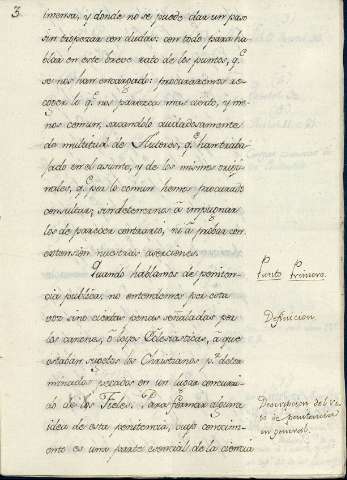 3
imensa, y donde no se puede dar un paso
sin tropezar con dudas: con todo para ha-
blar en este breve rato de los puntos, q.e
se nos han encargado: procuraremos re-
coger lo q.e nos parezca mas cierto, y me-
nos comun, sacandolo cuidadosamente
de multitud de Autores, q.e han traba-
jado en el asunto, y de los mismos origi-
nales, q.e por lo comun hemos procurado
consultar, sin detenernos à impugnar
los de parecer contrario, ni à probar con
extension nuestras aserciones.
Quando hablamos de peniten-
cia publica, no entendemos por esta
voz sino ciertas penas señaladas por
los canones, ò leyes Eclesiasticas, à que
estaban sugetos los Christianos p.r deter-
minados pecados en un lugar concurri-
do de los Fieles. Para formar alguna
idea de esta penitencia, cuyo conocimi-
ento es una parte esencial de la ciencia
Punto Primero.
Definicion
Descripcion del
de penitencia
en general.